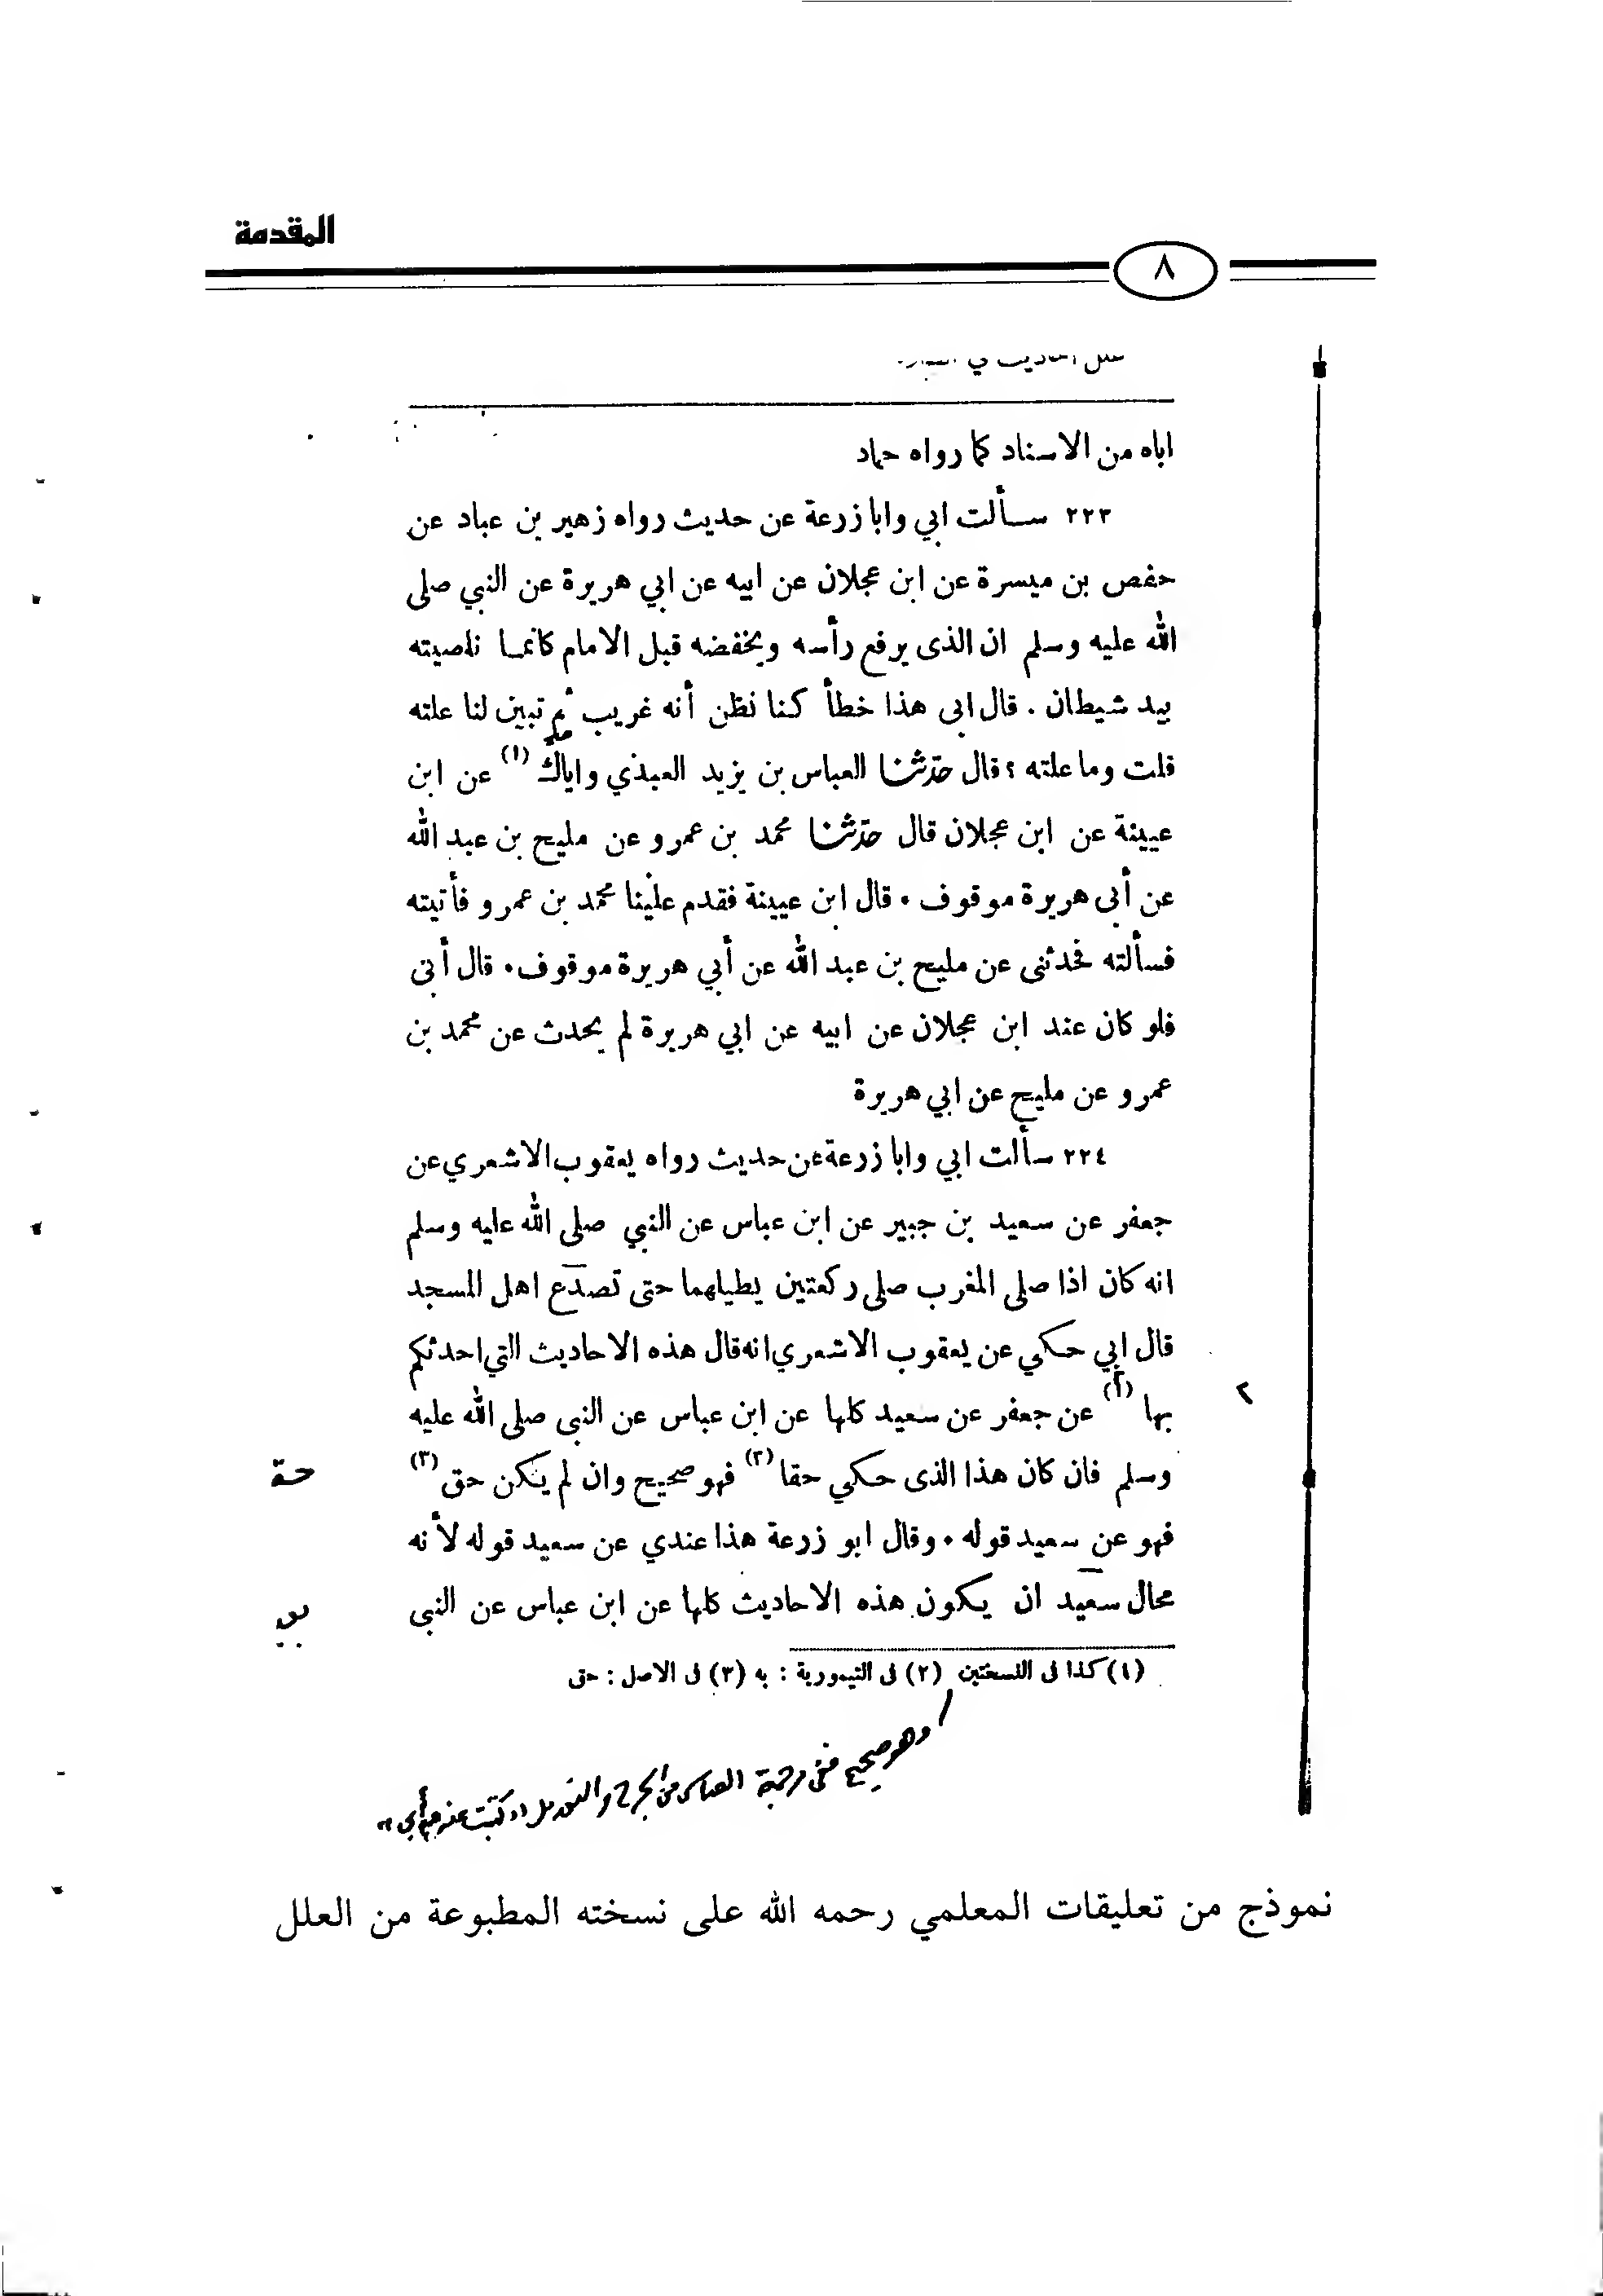 المقدمة
٨
اباه من الاسناد كما رواه حماد
٢٢٣ ســألت ابي وابا زرعة عن حديث رواه زهير بن عباد عن
حفص بن ميسرة عن ابن عجلان عن ابيه عن ابي هريرة عن النبي صلى
الله عليه وسلم ان الذى يرفع رأسه ويخفضه قبل الامام كانمـا ناصيته
بيد شيطان . قال ابى هذا خطأ كـنـا نظن أنه غريب ثم تبين لنا علته
قلت وما علته ؟ قال حدثنـا العباس بن يزيد العبدي واياك (١) عن ابن
عيينة عن ابن عجلان قال حدثنـا محمد بن عمرو عن مليح بن عبد الله
عن أبى هريرة موقوف ٠ قال ابن عيينة فقدم علينا محمد بن عمرو فأتيته
فسألته فحدثنى عن مليح بن عبد الله عن أبي هريرة موقوف ٠ قال أبى
فلو كان عند ابن عجلان عن ابيه عن ابي هريرة لم يحدث عن محمد بن
عمرو عن مليح عن ابي هريرة
٢٢٤ سألت ابي وابا زرعة عن حديث رواه يعقوب الاشعري عن
جعفر عن سعيد بن جبير عن ابن عباس عن النبي صلى الله عليه وسلم
انه كان اذا صلى المغرب صلى ركعتين يطيلهما حتى تصدع اهل المسجد
قال ابي حكي عن يعقوب الاشعري انه قال هذه الاحاديث التي احدثكم
بها (٢) عن جعفر عن سعيد كلها عن ابن عباس عن النبى صلى الله عليه
٢
وسلم فان كان هذا الذى حكي حقا (٢) فهو صحيح وان لم يكن حق (٣)
فهو عن سعيد قوله ٠ وقال ابو زرعة هذا عندي عن سعيد قوله لأنه
محال سعيد ان يكون هذه الاحاديث كلها عن ابن عباس عن النبى
(١) كذا فى النسختين (٢) فى التيمورية : به (٣) فى الاصل : حق
وهو صحيح ففى ترجمة العباس من الجرح والتعديل «كتبت عنه مع أبي»
نموذج من تعليقات المعلمي رحمه الله على نسخته المطبوعة من العلل